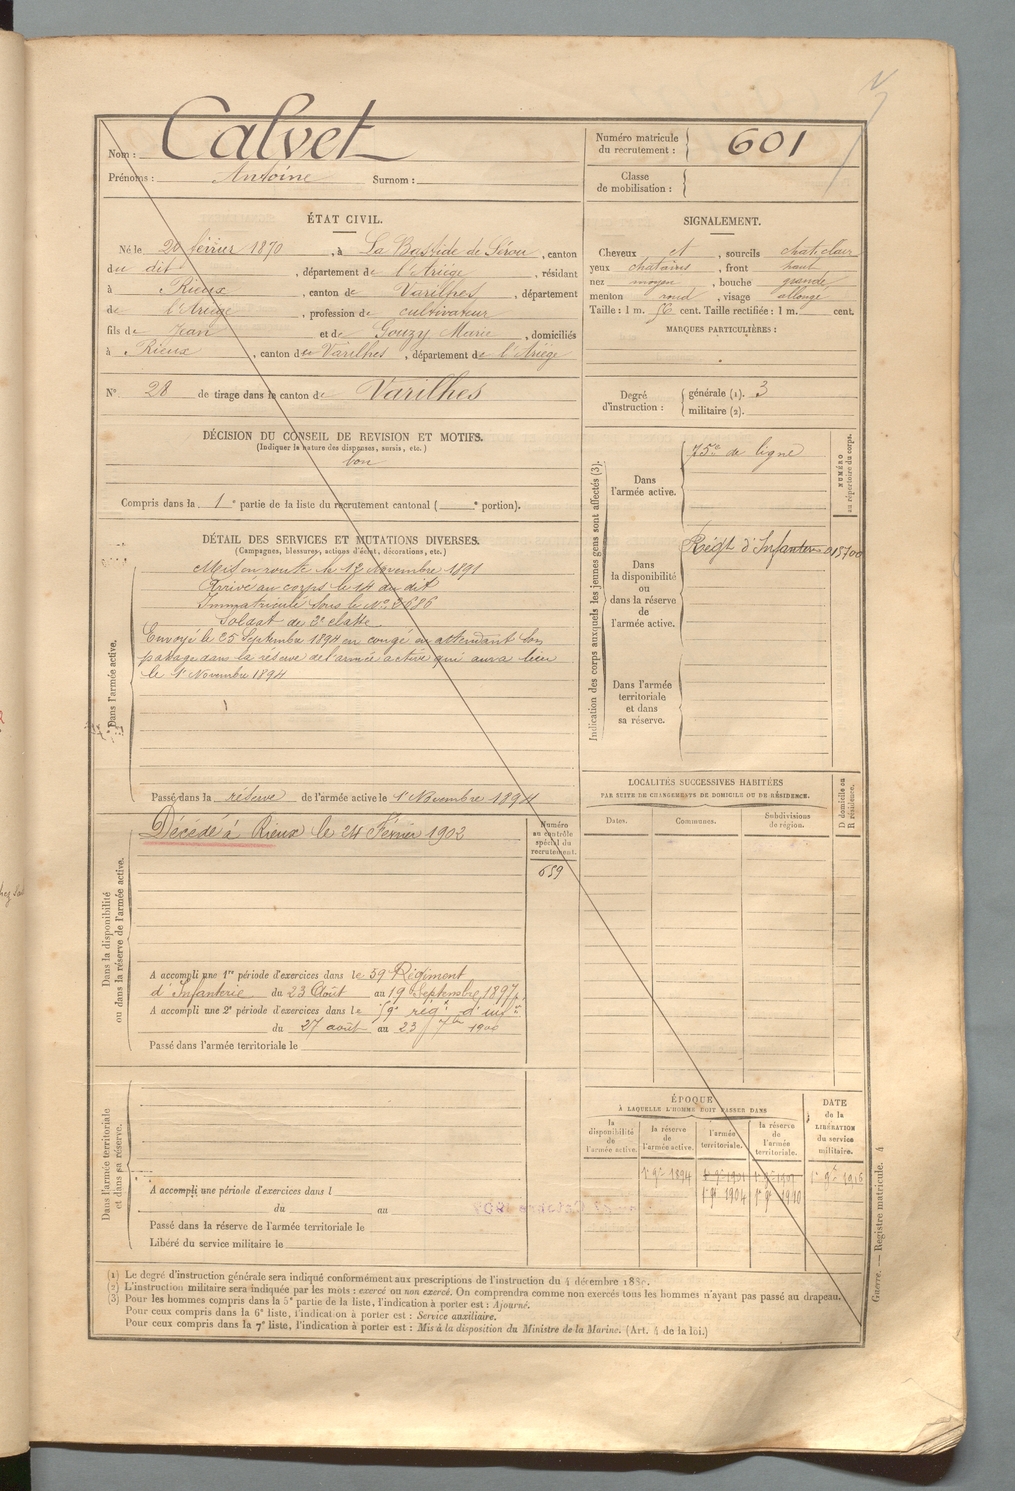 Nom : Calvet
Prénoms : Antoine Surnom :
Numéro matricule du recrutement : 601
Classe de mobilisation :
ÉTAT CIVIL.
Né le 20 février 1870, à La Bastide de Sérou, canton
du dit, département de l'Ariège, résidant
à Rieux, canton de Varilhes, département
de l'Ariège, profession de cultivateur
fils de Jean et de Gouzy Marie, domiciliés
à Rieux, canton de Varilhes, département de l'Ariège
SIGNALEMENT.
Cheveux et, sourcils chat. clair
yeux chatains, front haut
nez moyen, bouche grande
menton rond, visage allongé
Taille : 1 m. 56 cent. Taille rectifiée : 1 m. cent.
MARQUES PARTICULIÈRES :
N° 28 de tirage dans le canton de Varilhes
Degré d'instruction : générale (1). 3
militaire (2).
DÉCISION DU CONSEIL DE REVISION ET MOTIFS.
(Indiquer la nature des dispenses, sursis, etc.)
bon
Compris dans la 1e partie de la liste du recrutement cantonal ( e portion).
DÉTAIL DES SERVICES ET MUTATIONS DIVERSES.
(Campagnes, blessures, actions d'éclat, décorations, etc.)
Dans l'armée active.
Mis en route le 12 Novembre 1891
Arrivé au corps le 14 du dit
Immatriculé sous le N°
Soldat de 2e classe
Envoyé le 25 Septembre 1894 en congé en attendant son
passage dans la réserve de l'armée active qui aura lieu
le 1er Novembre 1894
Passé dans la réserve de l'armée active le 1er Novembre 1894
Indication des corps auxquels les jeunes gens sont affectés (3).
Dans l'armée active.
de ligne
NUMÉRO au répertoire du corps.
Dans la disponibilité ou dans la réserve de l'armée active.
Régt d'Infanterie 015700
Dans l'armée territoriale et dans sa réserve.
LOCALITÉS SUCCESSIVES HABITÉES
PAR SUITE DE CHANGEMENTS DE DOMICILE OU DE RÉSIDENCE.
Dates. Communes. Subdivisions de région. D domicile ou R résidence.
Dans la disponibilité ou dans la réserve de l'armée active.
Décédé à Rieux le 24 Février 1902
Numéro au contrôle spécial du recrutement.
659
A accompli une 1re période d'exercices dans le 59 Régiment
d'Infanterie du 23 Août au 19 Septembre 1897
A accompli une 2e période d'exercices dans le 59e régt d'infie
du 27 août au 23 7bre 1900
Passé dans l'armée territoriale le
Dans l'armée territoriale et dans sa réserve.
A accompli une période d'exercices dans l
du au
Passé dans la réserve de l'armée territoriale le
Libéré du service militaire le
ÉPOQUE
À LAQUELLE L'HOMME DOIT PASSER DANS
la disponibilité de l'armée active.
la réserve de l'armée active.
l'armée territoriale.
la réserve de l'armée territoriale.
DATE de la LIBÉRATION du service militaire.
1er 9bre 1894
1er 9bre 1904 1er 9bre 1910
(1) Le degré d'instruction générale sera indiqué conformément aux prescriptions de l'instruction du 4 décembre 1889.
(2) L'instruction militaire sera indiquée par les mots : exercé ou non exercé. On comprendra comme non exercés tous les hommes n'ayant pas passé au drapeau.
(3) Pour les hommes compris dans la 5e partie de la liste, l'indication à porter est : Ajourné.
Pour ceux compris dans la 6e liste, l'indication à porter est : Service auxiliaire.
Pour ceux compris dans la 7e liste, l'indication à porter est : Mis à la disposition du Ministre de la Marine. (Art. 4 de la loi.)
Guerre. — Registre matricule. 4